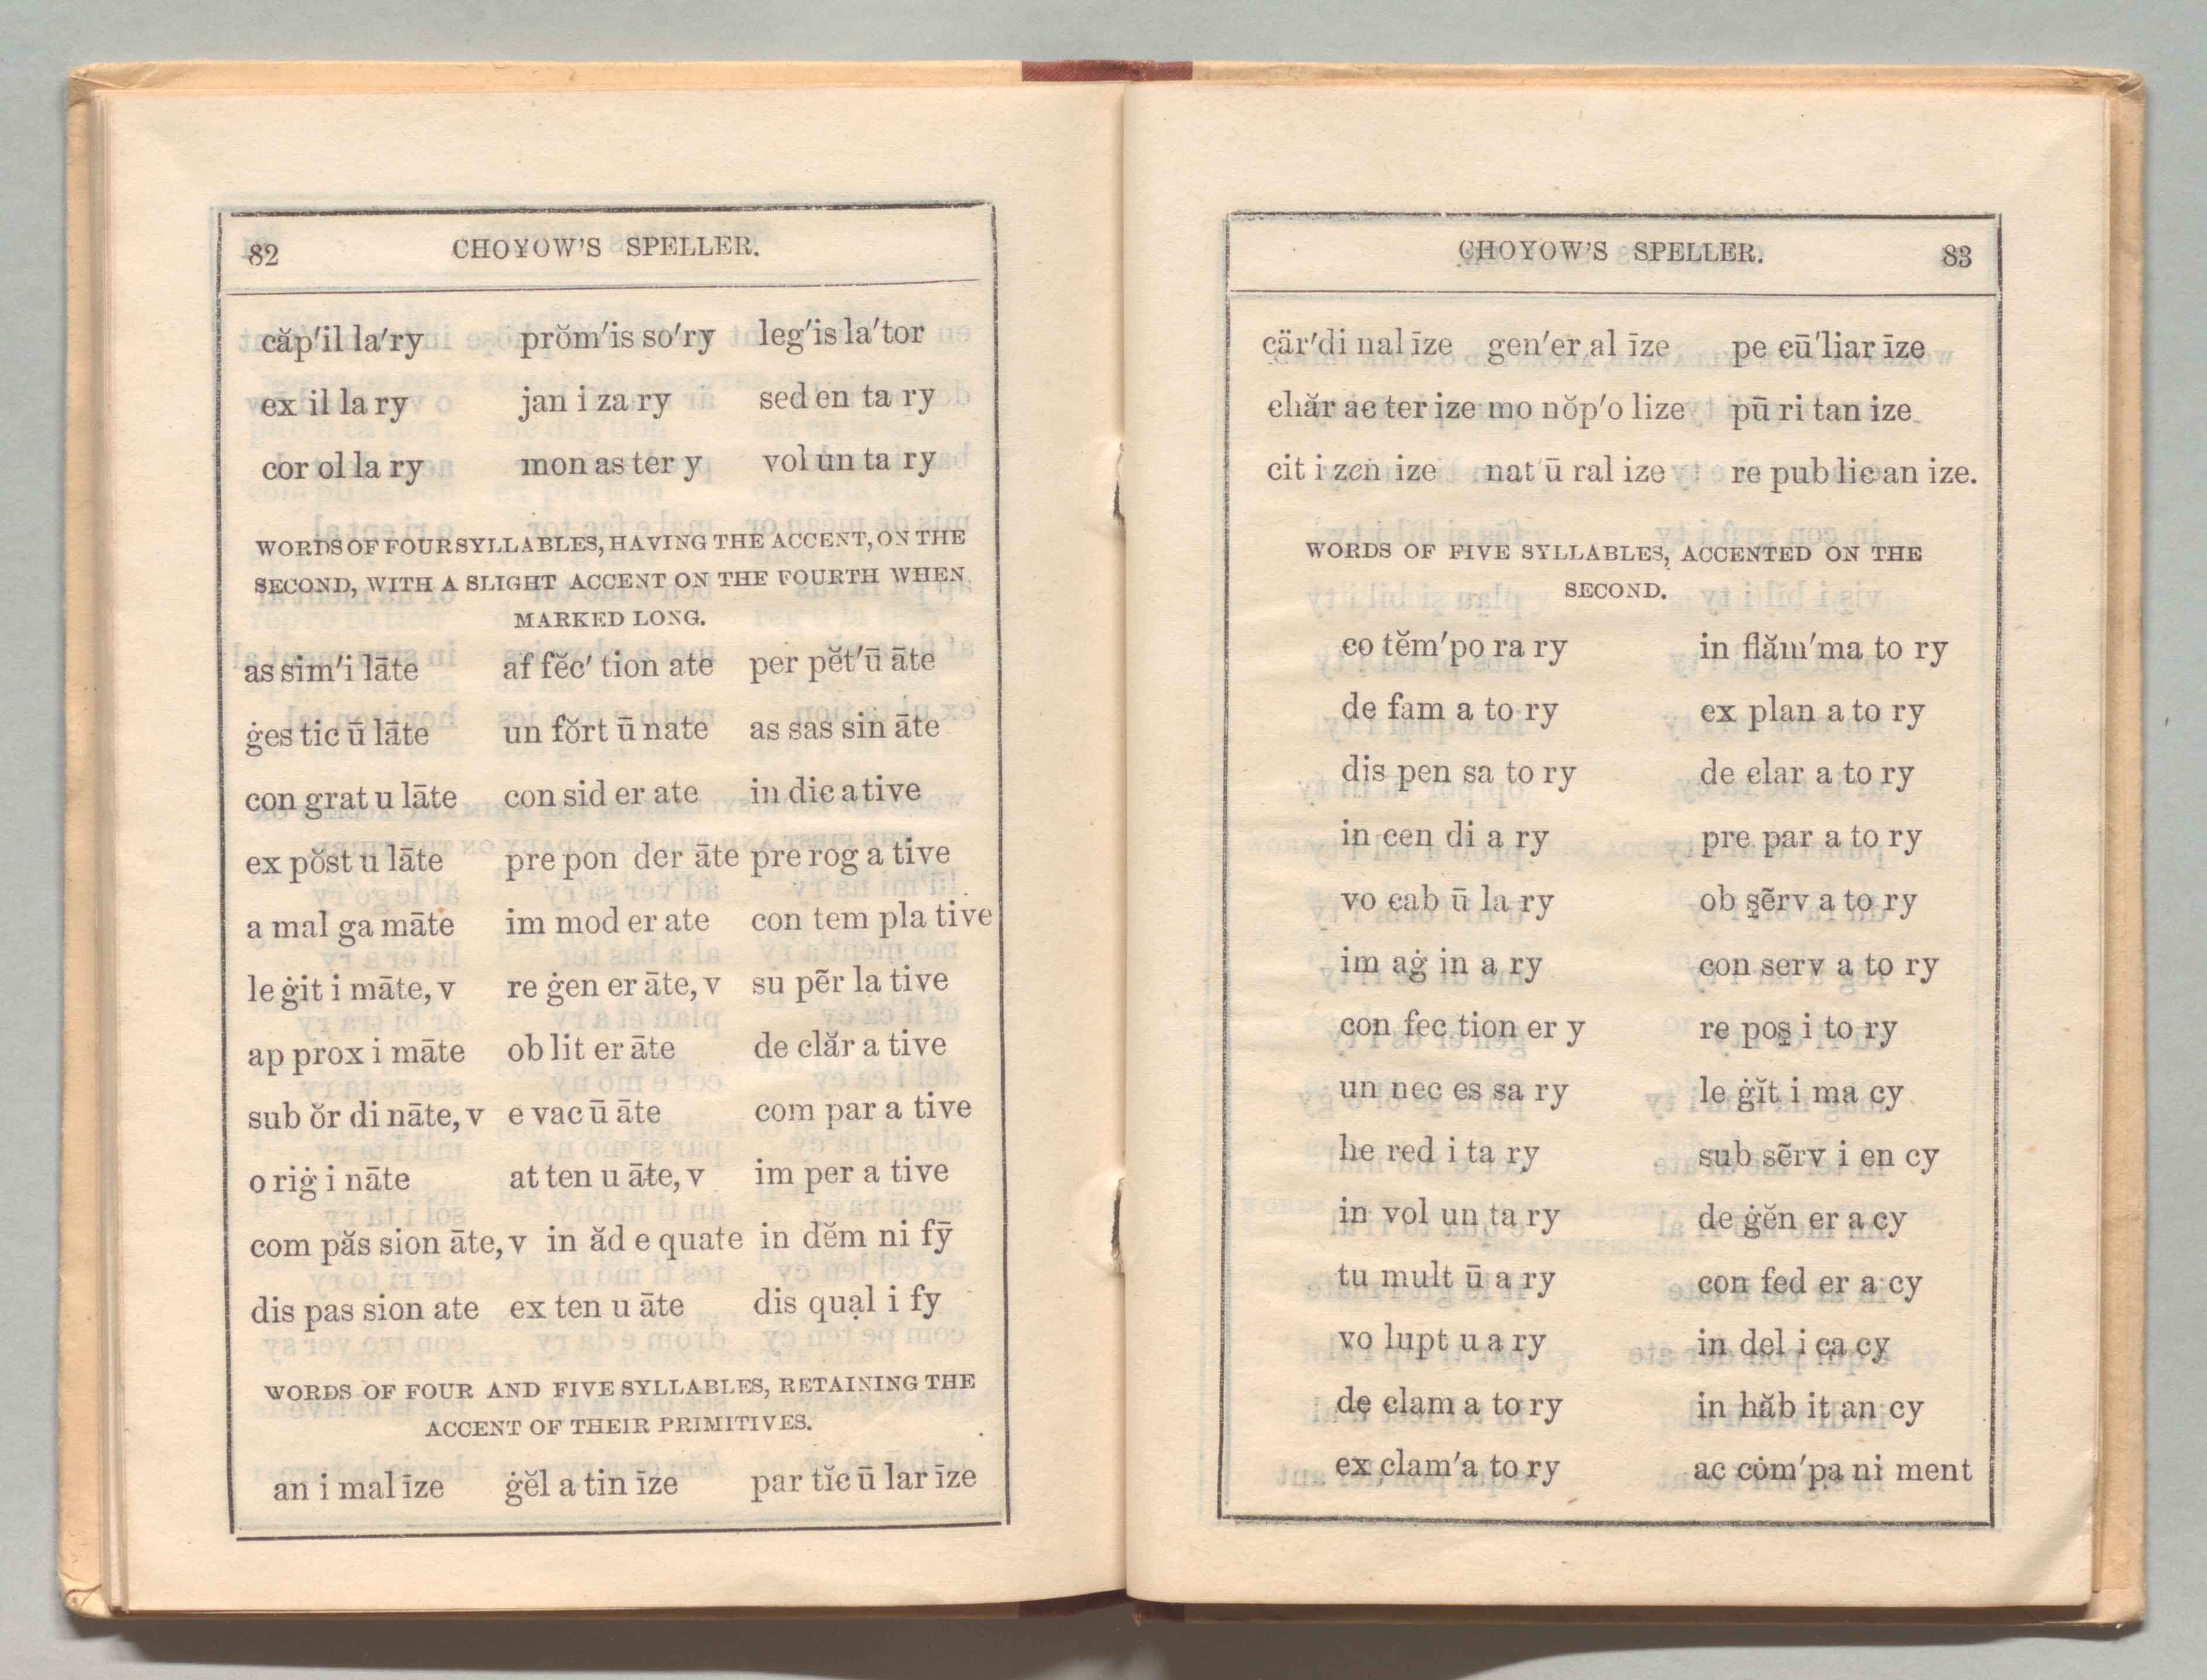 82 CHOYOW'S SPELLER.
căp'il la'ry prŏm'is so'ry leg'is la'tor
ex il la ry jan i za ry sed en ta ry
cor ol la ry mon as ter y vol un ta ry
WORDS OF FOUR SYLLABLES, HAVING THE ACCENT, ON THE
SECOND, WITH A SLIGHT ACCENT ON THE FOURTH WHEN
MARKED LONG.
as sim'i lāte af fĕc' tion ate per pĕt'ū āte
ġes tic ū lāte un fŏrt ū nate as sas sin āte
con grat u lāte con sid er ate in dic a tive
ex pŏst u lāte pre pon der āte pre rog a tive
a mal ga māte im mod er ate con tem pla tive
le ġit i māte, v re ġen er āte, v su pẽr la tive
ap prox i māte ob lit er āte de clăr a tive
sub ŏr di nāte, v e vac ū āte com par a tive
o riġ i nāte at ten u āte, v im per a tive
com păs sion āte, v in ăd e quate in dĕm ni fȳ
dis pas sion ate ex ten u āte dis quạl i fy
WORDS OF FOUR AND FIVE SYLLABLES, RETAINING THE
ACCENT OF THEIR PRIMITIVES.
an i mal īze ġĕl a tin īze par tĭc ū lar īze
CHOYOW'S SPELLER. 83
cär'di nal īze gen'er al īze pe cū'liar īze
chăr ac ter ize mo nŏp'o lize pū ri tan ize
cit i zen ize nat ū ral ize re pub lic an ize.
WORDS OF FIVE SYLLABLES, ACCENTED ON THE
SECOND.
co tĕm'po ra ry in flăm'ma to ry
de fam a to ry ex plan a to ry
dis pen sa to ry de clar a to ry
in cen di a ry pre par a to ry
vo cab ū la ry ob s̱ẽrv a to ry
im aġ in a ry con serv a to ry
con fec tion er y re pos̱ i to ry
un nec es sa ry le ġĭt i ma cy
he red i ta ry sub sẽrv i en cy
in vol un ta ry de ġĕn er a cy
tu mult ū a ry con fed er a cy
vo lupt u a ry in del i ca cy
de clam a to ry in hăb it an cy
ex clam'a to ry ac cȯm'pa ni ment